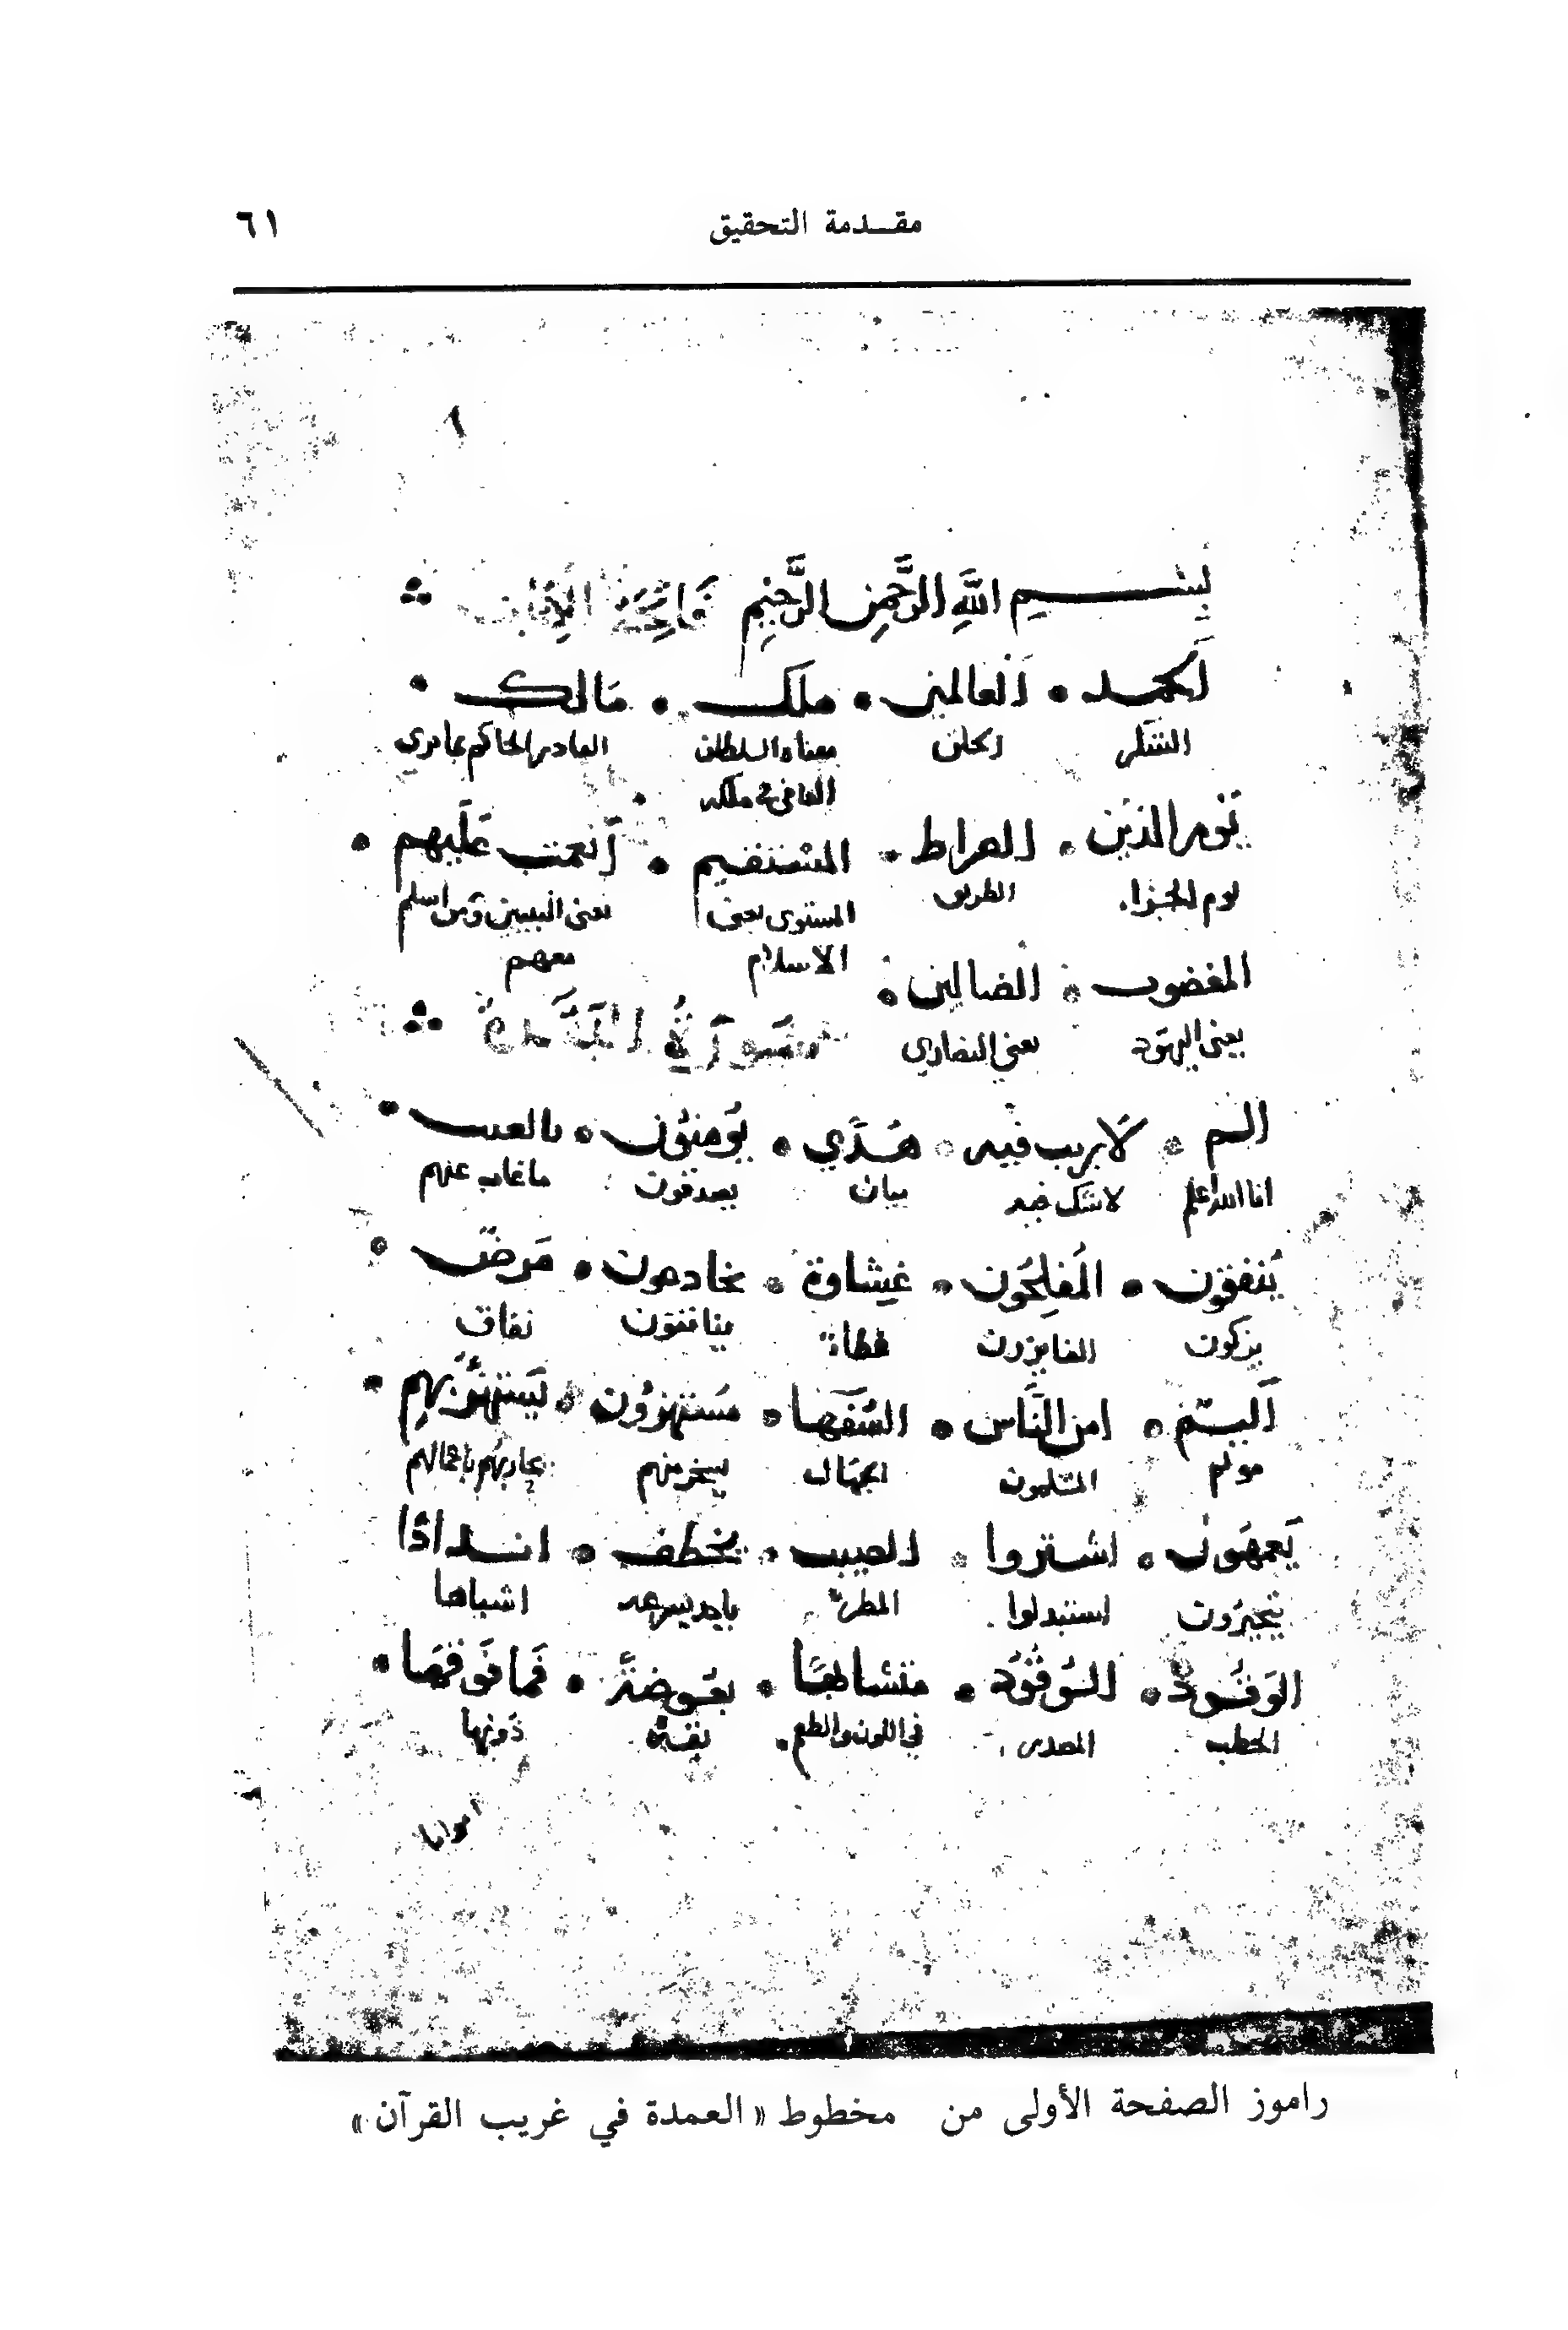 مقدمة التحقيق ٦١
بِسْمِ اللَّهِ الرَّحْمَنِ الرَّحِيمِ فَاتِحَةُ الْكِتَابِ
الحمد • العالمين • ملك • مالك •
الشكر الخلق معناه السلطان القادر الحاكم بما يرى
القاضي في ملكه
يوم الدين • الصراط • المستقيم • أنعمت عليهم •
يوم الجزاء الطريق المستوى يعنى يعنى النبيين ومن اسلم
الاسلام معهم
المغضوب • الضالين •
يعنى اليهود يعنى النصارى
سورة البقرة
الم • لا ريب فيه • هدى • يومنون • بالغيب •
انا الله اعلم لا شك فيه بيان يصدقون ما غاب عنهم
ينفقون • المفلحون • غشاوة • يخادعون • مرض •
يزكون الفايزون غطاء ينافقون نفاق
أليم • امن الناس • السفها • مستهزؤن • يستهزئ بهم •
مولم المسلمون الجهال يسخر منهم يجازيهم باعمالهم
يعمهون • اشتروا • الصيب • يخطف • اندادًا
يتحيرون استبدلوا المطر ياخد بسرعه اشباها
الوقود • الوقود • متشابها • بعوضة • فما فوقها •
الحطب المصدر في اللون والطعم بقة دونها
أمواتا
راموز الصفحة الأولى من مخطوط « العمدة في غريب القرآن »